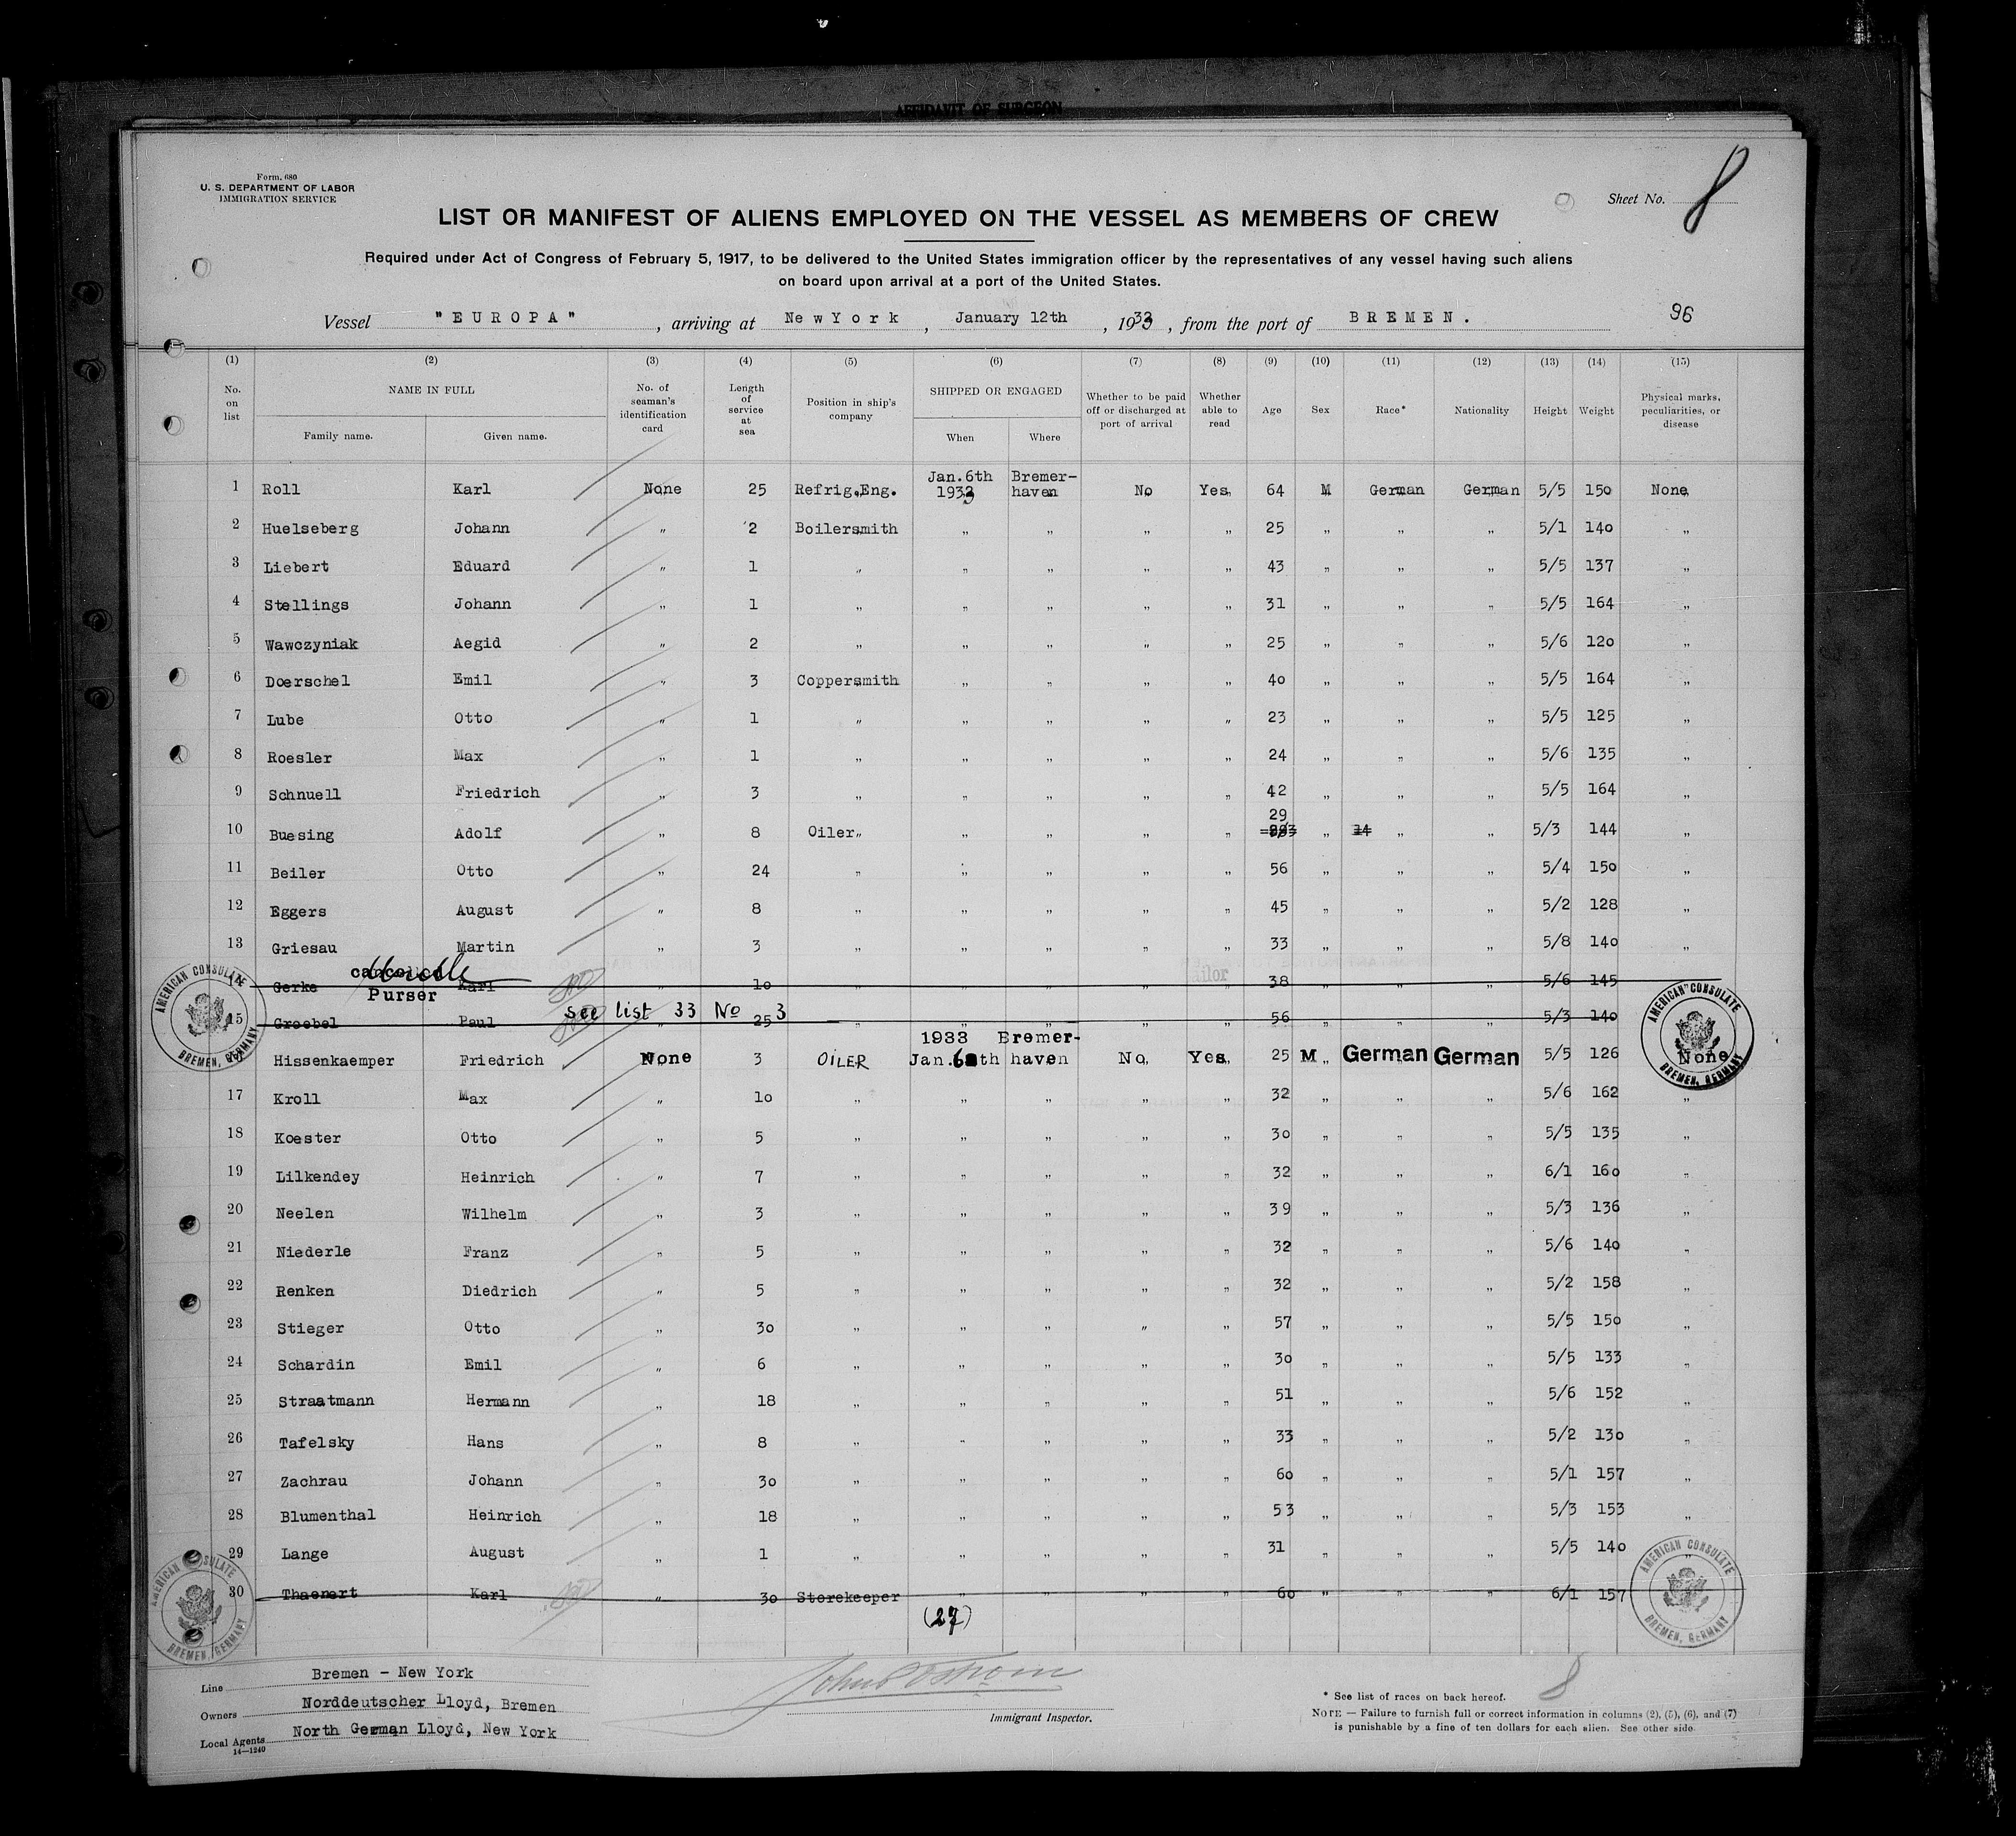 AFFIDAVIT OF SURGEON
Form. 680
U. S. DEPARTMENT OF LABOR
IMMIGRATION SERVICE
Sheet No. 8
LIST OR MANIFEST OF ALIENS EMPLOYED ON THE VESSEL AS MEMBERS OF CREW
Required under Act of Congress of February 5, 1917, to be delivered to the United States immigration officer by the representatives of any vessel having such aliens
on board upon arrival at a port of the United States.
Vessel "EUROPA", arriving at New York, January 12th, 1933, from the port of BREMEN. 96
(1) (2) (3) (4) (5) (6) (7) (8) (9) (10) (11) (12) (13) (14) (15)
No. on list NAME IN FULL Family name. Given name. No. of seaman's identification card Length of service at sea Position in ship's company SHIPPED OR ENGAGED When Where Whether to be paid off or discharged at port of arrival Whether able to read Age Sex Race* Nationality Height Weight Physical marks, peculiarities, or disease
1 Roll Karl None 25 Refrig.Eng. Jan.6th 1933 Bremer-haven No Yes 64 M German German 5/5 150 None
2 Huelseberg Johann „ 2 Boilersmith „ „ „ „ 25 „ „ „ 5/1 140 „
3 Liebert Eduard „ 1 „ „ „ „ „ 43 „ „ „ 5/5 137 „
4 Stellings Johann „ 1 „ „ „ „ „ 31 „ „ „ 5/5 164 „
5 Wawczyniak Aegid „ 2 „ „ „ „ „ 25 „ „ „ 5/6 120 „
6 Doerschel Emil „ 3 Coppersmith „ „ „ „ 40 „ „ „ 5/5 164 „
7 Lube Otto „ 1 „ „ „ „ „ 23 „ „ „ 5/5 125 „
8 Roesler Max „ 1 „ „ „ „ „ 24 „ „ „ 5/6 135 „
9 Schnuell Friedrich „ 3 „ „ „ „ „ 42 „ „ „ 5/5 164 „
10 Buesing Adolf „ 8 Oiler „ „ „ „ 29 „ 14 „ „ 5/3 144 „
11 Beiler Otto „ 24 „ „ „ „ „ 56 „ „ „ 5/4 150 „
12 Eggers August „ 8 „ „ „ „ „ 45 „ „ „ 5/2 128 „
13 Griesau Martin „ 3 „ „ „ „ „ 33 „ „ „ 5/8 140 „
14 Gerke Karl „ 10 „ „ „ „ „ 38 „ „ „ 5/6 145 „
Purser
see list 33 No 3
15 Groebel Paul „ 25 „ „ „ „ „ 56 „ „ „ 5/3 140
Hissenkaemper Friedrich None 3 OILER 1933 Jan. 6th Bremer-haven No Yes 25 M German German 5/5 126 None
17 Kroll Max „ 10 „ „ „ „ „ 32 „ „ „ 5/6 162 „
18 Koester Otto „ 5 „ „ „ „ „ 30 „ „ „ 5/5 135 „
19 Lilkendey Heinrich „ 7 „ „ „ „ „ 32 „ „ „ 6/1 160 „
20 Neelen Wilhelm „ 3 „ „ „ „ „ 39 „ „ „ 5/3 136 „
21 Niederle Franz „ 5 „ „ „ „ „ 32 „ „ „ 5/6 140 „
22 Renken Diedrich „ 5 „ „ „ „ „ 32 „ „ „ 5/2 158 „
23 Stieger Otto „ 30 „ „ „ „ „ 57 „ „ „ 5/5 150 „
24 Schardin Emil „ 6 „ „ „ „ „ 30 „ „ „ 5/5 133 „
25 Straatmann Hermann „ 18 „ „ „ „ „ 51 „ „ „ 5/6 152 „
26 Tafelsky Hans „ 8 „ „ „ „ „ 33 „ „ „ 5/2 130 „
27 Zachrau Johann „ 30 „ „ „ „ „ 60 „ „ „ 5/1 157 „
28 Blumenthal Heinrich „ 18 „ „ „ „ „ 53 „ „ „ 5/3 153 „
29 Lange August „ 1 „ „ „ „ „ 31 „ „ „ 5/5 140 „
30 Thaenert Karl „ 30 Storekeeper „ „ „ „ 60 „ „ „ 6/1 157
(27)
AMERICAN CONSULATE BREMEN, GERMANY
AMERICAN CONSULATE BREMEN, GERMANY
AMERICAN CONSULATE BREMEN, GERMANY
AMERICAN CONSULATE BREMEN, GERMANY
Line Bremen - New York
Owners Norddeutscher Lloyd, Bremen
Local Agents North German Lloyd, New York
14—1240
Immigrant Inspector.
8
* See list of races on back hereof.
NOTE — Failure to furnish full or correct information in columns (2), (5), (6), and (7)
is punishable by a fine of ten dollars for each alien. See other side